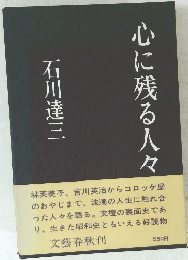 心に残る人々
石川達三
林芙美子、吉川英治からコロッケ屋
のおやじまで、法漠の人生に触れ合
った人々を語る。文壇の裏面史であ
り、生きた昭和史ともいえる好読物
文藝春秋刊